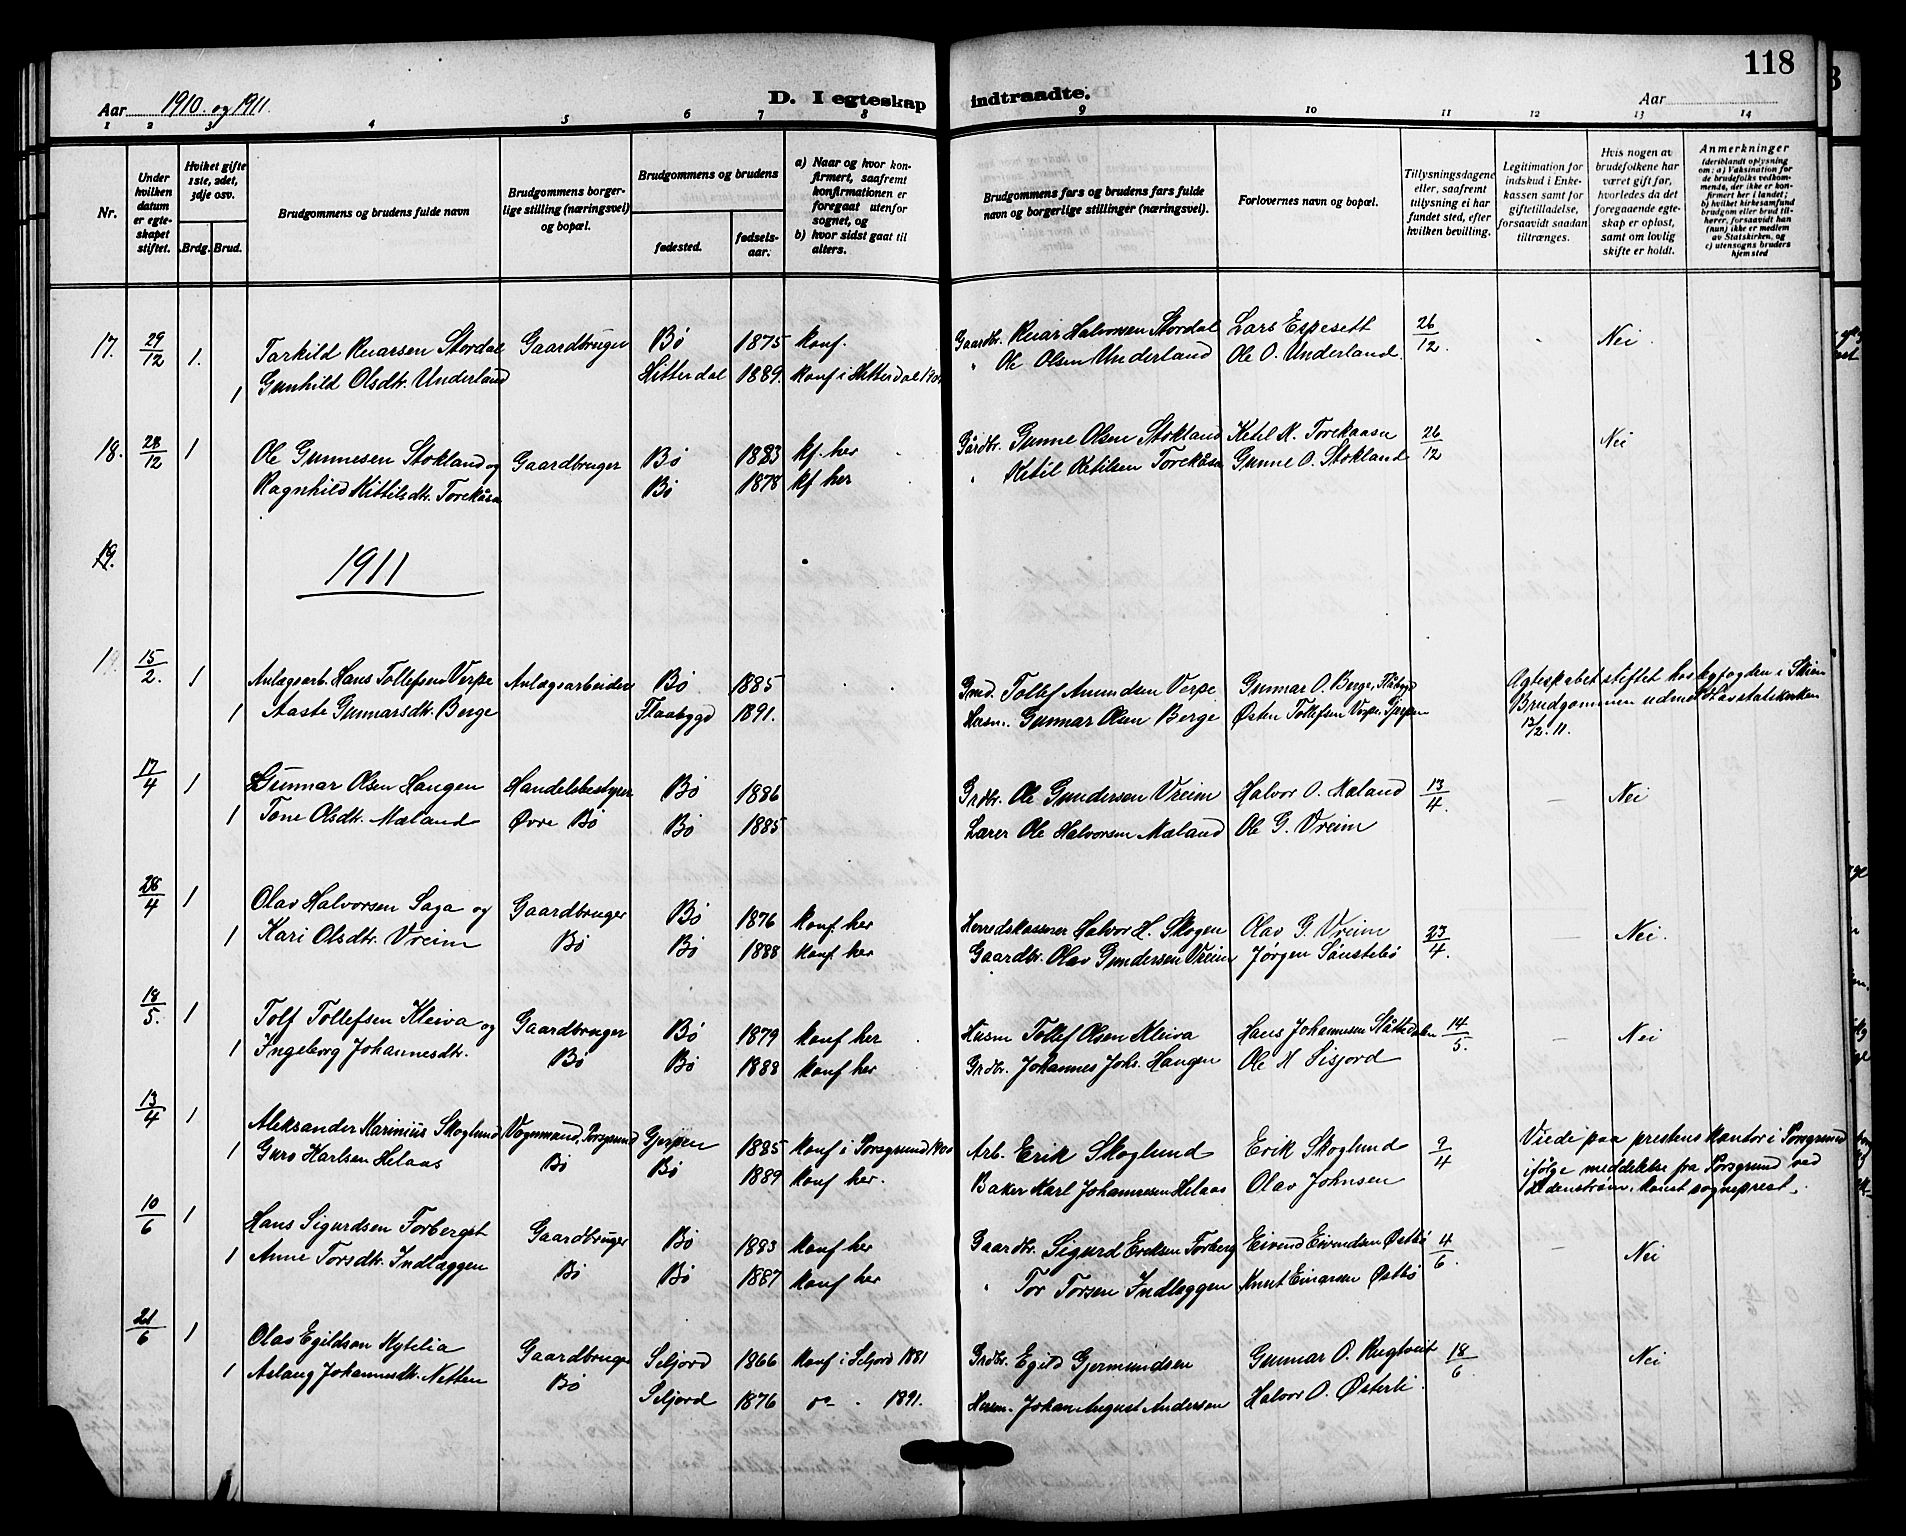 118
Aar 1910 og 1911.
D. I egteskap indtraadte.
Aar
1 2 3 4 5 6 7 8 9 10 11 12 13 14
Nr.
Under hvilken datum er egteskapet stiftet.
Hviket gifte 1ste, 2det, 3dje osv.
Brdg. Brud.
Brudgommens og brudens fulde navn
Brudgommens borgerlige stilling (næringsvei) og bopæl.
Brudgommens og brudens
fødested.
fødselsaar.
a) Naar og hvor konfirmert, saafremt konfirmationen er foregaat utenfor sognet, og
b) hvor sidst gaat til alters.
Brudgommens fars og brudens fars fulde navn og borgerlige stillinger (næringsvei).
Forlovernes navn og bopæl.
Tillysningsdagene eller, saafremt tillysning ei har fundet sted, efter hvilken bevilling.
Legitimation for indskud i Enkekassen samt for giftetilladelse, forsaavidt saadan tiltrænges.
Hvis nogen av brudefolkene har været gift før, hvorledes da det foregaaende egteskap er opløst, samt om lovlig skifte er holdt.
Anmerkninger (deriblandt oplysning om: a) Vaksination for de brudefolks vedkommende, der ikke er konfirmert her i landet; b) hvilket kirkesamfund brudgom eller brud tilhører, forsaavidt han (hun) ikke er medlem av Statskirken, og c) utensogns bruders hjemsted
17. 29/12 1. Tarkild Ruarsen Stordal Gaardbruger Bø 1875 konf. Gaardbr. Ruar Halvorsen Stordal Lars Espesett 26/12 Nei
1 Gunhild Olsdtr. Underland Hitterdal 1889. konf i Hitterdal " Ole Olsen Underland Ole O. Underland.
18. 28/12 1 Ole Gunnesen Stokland og Gaardbruger Bø 1883 kf. her Gårdbr. Gunne Olsen Stokland Ketil K. Torekaasa 26/12 Nei
Ragnhild Kittilsdtr. Torekåsa Bø 1878 kf her " Ketil Ketilsen Torekåsa Gunne O. Stokland
19.
1911
1 15/2. 1 Anlægsarb. Hans Tollefsen Verpe Anlægsarbeider Bø 1885 Grd. Tollef Amundsen Verpe Gunnar O. Berge, Flåbygd Ægteskabet stiftet hos byfogden i Skien
1 Aaste Gunnarsdtr. Berge Flaabygd 1891. Husm. Gunnar Olsen Berge Østen Tollefsen Verpe, Gjerpen Brudgommen udmeldt av statskirken
12/2. 11.
17/4 1 Gunnar Olsen Haugen Handelsbestyrer Bø 1886 Grdbr. Ole Gundersen Vreim Halvor O. Mæland 13/4. — Nei
1 Tone Olsdtr. Mæland Øvre Bø Bø 1885 Lærer Ole Halvorsen Mæland Ole G. Vreim
28/4 1 Olav Halvorsen Saga og Gaardbruger Bø 1876 konf. her Herredskasserer Halvor H. Skogen Olav G. Vreim 23/4. — Nei.
1 Kari Olsdtr. Vreim Bø Bø 1888 konf her Gaardbr. Olav Gundersen Vreim Jørgen Sønstebø
18/5. 1 Tolf Tollefsen Kleiva og Gaardbruger Bø 1879 konf her Husm Tollef Olsen Kleiva Hans Johannesen 14/5. — Nei
1 Ingeborg Johannesdtr. Bø Bø 1888 konf her Grdbr. Johannes Johs. Haugen Ole H Sisjord
13/4 1 Aleksander Marinius Skoglund Vognmand, Porsgrund Gjerpen 1885 konf i Porsgrund 1900 Arb. Erik Skoglund Erik Skoglund 9/4 Viede paa prestens kontor i Porsgrund
1 Guro Karlsen Helaas Bø Bø 1889 konf her. Baker Karl Johannesen Helaas Olav Johnsen ifølge meddelelse fra Porsgrund ved
konst sogneprest.
10/6 1 Hans Sigurdsen Forberget Gaardbruger Bø 1883 konf her Gaardbr. Sigurd Eriksen Forberg Eivind Eivindsen Østbø 4/6. — Nei
1 Anne Torsdtr. Indlæggen Bø Bø 1887 konf her " Tor Torsen Indlæggen Knut Einarsen Østbø
21/6 1 Olav Egildsen Nytelia Gaardbruger Seljord 1866 konf i Seljord 1881 Grdbr. Egild Gjermundsen Gunnar O. Rugtveit 18/6 Nei
1 Aslaug Johannesdtr. Netten Bø Seljord 1876 1891. Husm. Johan August Andersen Halvor O. Østerli